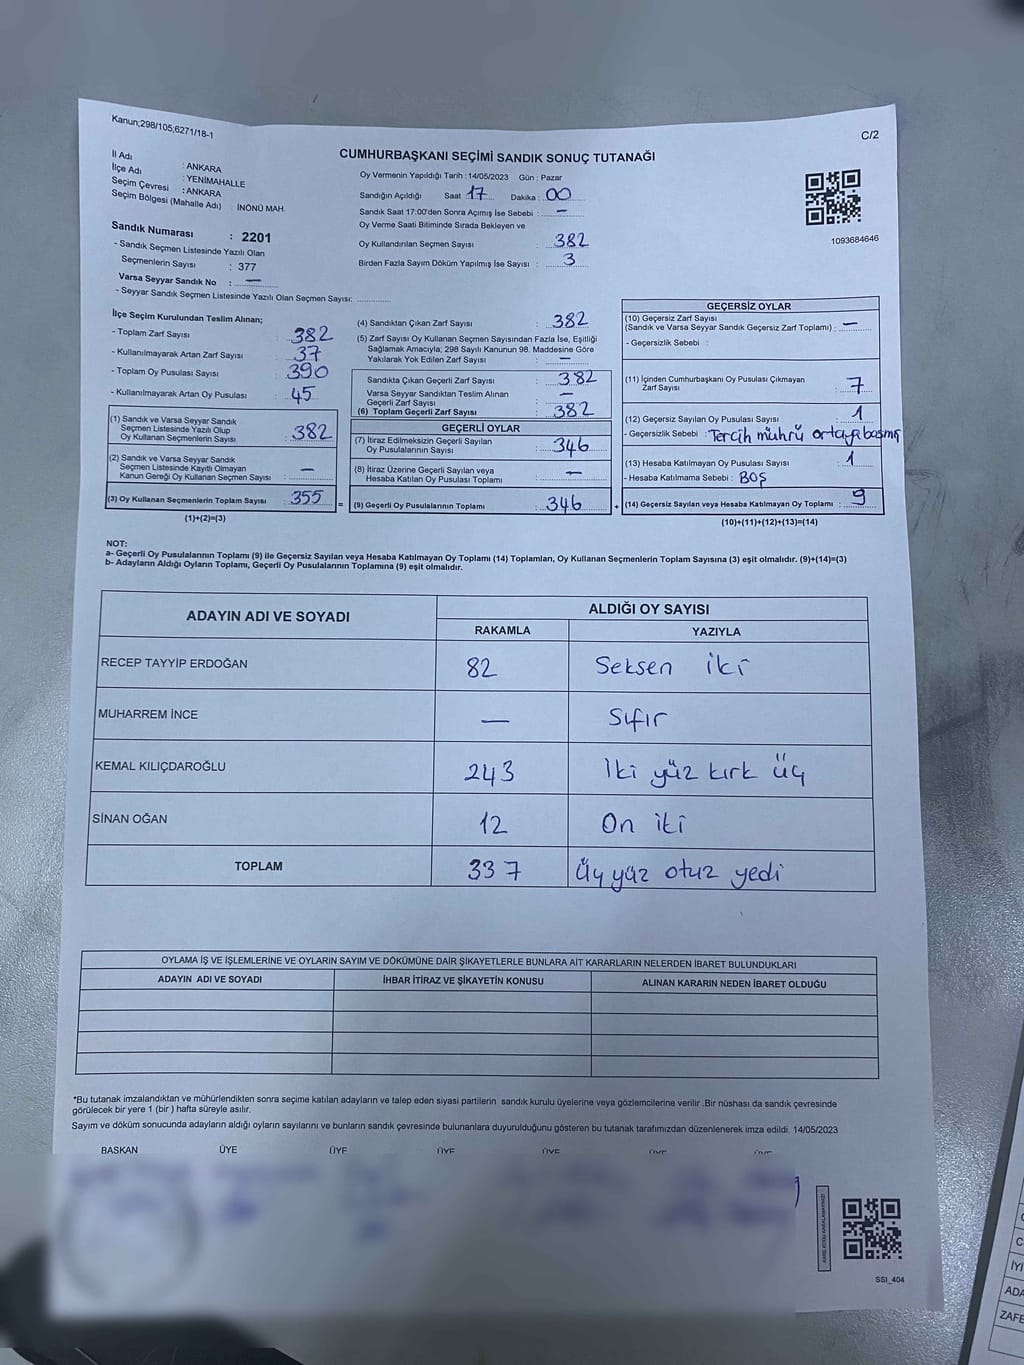 Kanun;298/105;6271/18-1
C/2
CUMHURBAŞKANI SEÇİMİ SANDIK SONUÇ TUTANAĞI
İl Adı : ANKARA
İlçe Adı : YENİMAHALLE
Seçim Çevresi : ANKARA
Seçim Bölgesi (Mahalle Adı) : İNÖNÜ MAH.
Sandık Numarası : 2201
- Sandık Seçmen Listesinde Yazılı Olan
Seçmenlerin Sayısı : 377
Varsa Seyyar Sandık No : —
- Seyyar Sandık Seçmen Listesinde Yazılı Olan Seçmen Sayısı:
Oy Vermenin Yapıldığı Tarih : 14/05/2023 Gün : Pazar
Sandığın Açıldığı Saat : 17 Dakika : 00
Sandık Saat 17:00'den Sonra Açımış İse Sebebi : —
Oy Verme Saati Bitiminde Sırada Bekleyen ve
Oy Kullandırılan Seçmen Sayısı : 382
Birden Fazla Sayım Döküm Yapılmış İse Sayısı : 3
1093684646
İlçe Seçim Kurulundan Teslim Alınan;
- Toplam Zarf Sayısı : 382
- Kullanılmayarak Artan Zarf Sayısı : 37
- Toplam Oy Pusulası Sayısı : 390
- Kullanılmayarak Artan Oy Pusulası : 45
(1) Sandık ve Varsa Seyyar Sandık
Seçmen Listesinde Yazılı Olup
Oy Kullanan Seçmenlerin Sayısı : 382
(2) Sandık ve Varsa Seyyar Sandık
Seçmen Listesinde Kayıtlı Olmayan
Kanun Gereği Oy Kullanan Seçmen Sayısı : —
(3) Oy Kullanan Seçmenlerin Toplam Sayısı : 355 =
(1)+(2)=(3)
(4) Sandıktan Çıkan Zarf Sayısı : 382
(5) Zarf Sayısı Oy Kullanan Seçmen Sayısından Fazla İse, Eşitliği
Sağlamak Amacıyla; 298 Sayılı Kanunun 98. Maddesine Göre
Yakılarak Yok Edilen Zarf Sayısı : —
Sandıkta Çıkan Geçerli Zarf Sayısı : 382
Varsa Seyyar Sandıktan Teslim Alınan
Geçerli Zarf Sayısı : —
(6) Toplam Geçerli Zarf Sayısı : 382
GEÇERLİ OYLAR
(7) İtiraz Edilmeksizin Geçerli Sayılan
Oy Pusulalarının Sayısı : 346
(8) İtiraz Üzerine Geçerli Sayılan veya
Hesaba Katılan Oy Pusulası Toplamı : —
(9) Geçerli Oy Pusulalarının Toplamı : 346 +
GEÇERSİZ OYLAR
(10) Geçersiz Zarf Sayısı
(Sandık ve Varsa Seyyar Sandık Geçersiz Zarf Toplamı) : —
- Geçersizlik Sebebi :
(11) İçinden Cumhurbaşkanı Oy Pusulası Çıkmayan
Zarf Sayısı : 7
(12) Geçersiz Sayılan Oy Pusulası Sayısı : 1
- Geçersizlik Sebebi : Tercih mührü ortaya basmış
(13) Hesaba Katılmayan Oy Pusulası Sayısı : 1
- Hesaba Katılmama Sebebi : BOŞ
(14) Geçersiz Sayılan veya Hesaba Katılmayan Oy Toplamı : 9
(10)+(11)+(12)+(13)=(14)
NOT:
a- Geçerli Oy Pusulalarının Toplamı (9) ile Geçersiz Sayılan veya Hesaba Katılmayan Oy Toplamı (14) Toplamları, Oy Kullanan Seçmenlerin Toplam Sayısına (3) eşit olmalıdır. (9)+(14)=(3)
b- Adayların Aldığı Oyların Toplamı, Geçerli Oy Pusulalarının Toplamına (9) eşit olmalıdır.
ADAYIN ADI VE SOYADI ALDIĞI OY SAYISI
RAKAMLA YAZIYLA
RECEP TAYYİP ERDOĞAN 82 Seksen iki
MUHARREM İNCE — Sıfır
KEMAL KILIÇDAROĞLU 243 İki yüz kırk üç
SİNAN OĞAN 12 On iki
TOPLAM 337 Üç yüz otuz yedi
OYLAMA İŞ VE İŞLEMLERİNE VE OYLARIN SAYIM VE DÖKÜMÜNE DAİR ŞİKAYETLERLE BUNLARA AİT KARARLARIN NELERDEN İBARET BULUNDUKLARI
ADAYIN ADI VE SOYADI İHBAR İTİRAZ VE ŞİKAYETİN KONUSU ALINAN KARARIN NEDEN İBARET OLDUĞU
*Bu tutanak imzalandıktan ve mühürlendikten sonra seçime katılan adayların ve talep eden siyasi partilerin sandık kurulu üyelerine veya gözlemcilerine verilir .Bir nüshası da sandık çevresinde
görülecek bir yere 1 (bir ) hafta süreyle asılır.
Sayım ve döküm sonucunda adayların aldığı oyların sayılarını ve bunların sandık çevresinde bulunanlara duyurulduğunu gösteren bu tutanak tarafımızdan düzenlenerek imza edildi. 14/05/2023
BAŞKAN ÜYE ÜYE ÜYE ÜYE ÜYE ÜYE
SSI_404
İYİ
ADA
ZAFE